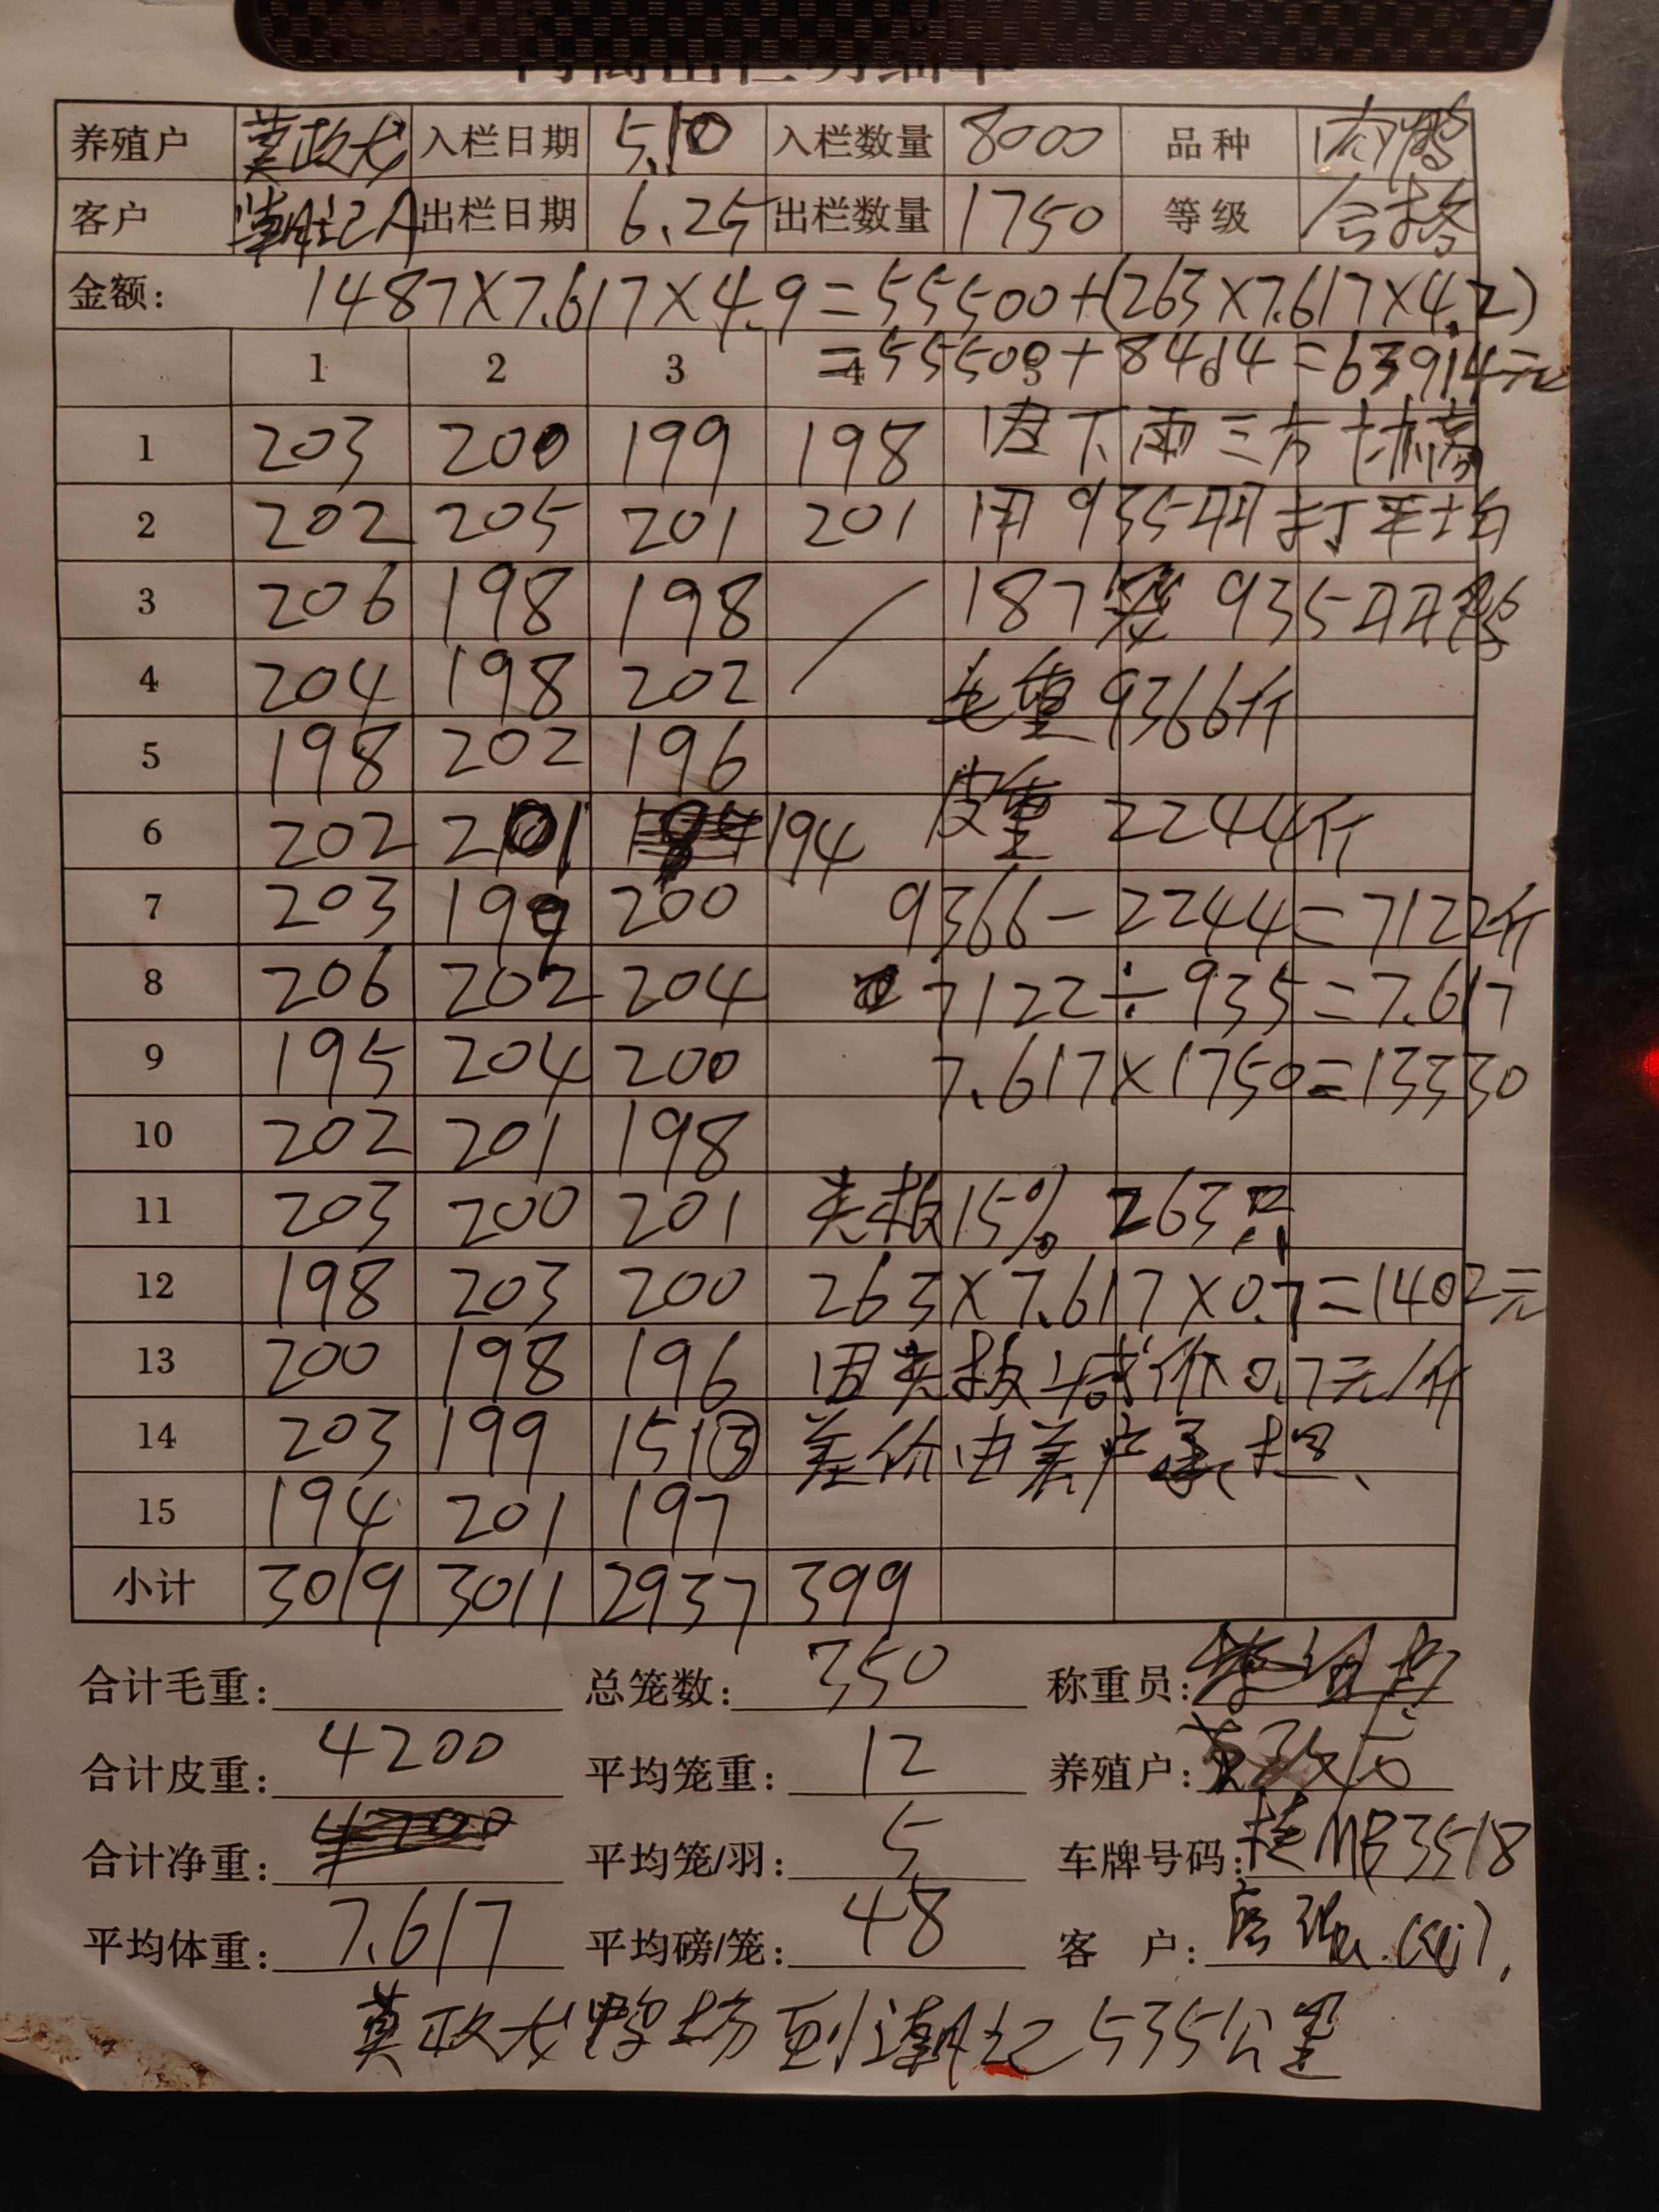 养殖户 莫政龙 入栏日期 5.10 入栏数量 8000 品种 肉鸭
客户 潮记A 出栏日期 6.25 出栏数量 1750 等级 合格
金额: 1487×7.617×4.9=55500+(263×7.617×4.2)
1 2 3 4 =55500+8414=63914元
1 203 200 199 198 因下雨三方协商
2 202 205 201 201 用935羽打平均
3 206 198 198 187笼 935羽鸭
4 204 198 202 毛重9366斤
5 198 202 196
6 202 201 194 皮重 2244斤
7 203 199 200 9366-2244=7122斤
8 206 202 204 7122÷935=7.617
9 195 204 200 7.617×1750=13330
10 202 201 198
11 203 200 201 夹板15% 263只
12 198 203 200 263×7.617×0.7=1402元
13 200 198 196 因夹板减价0.7元/斤
14 203 199 151③ 差价由养户承担、
15 194 201 197
小计 3019 3011 2937 399
合计毛重: 总笼数: 350 称重员:
合计皮重: 4200 平均笼重: 12 养殖户:
合计净重: 平均笼/羽: 5 车牌号码: 桂MB3518
平均体重: 7.617 平均磅/笼: 48 客 户:
莫政龙鸭场到潮记535公里